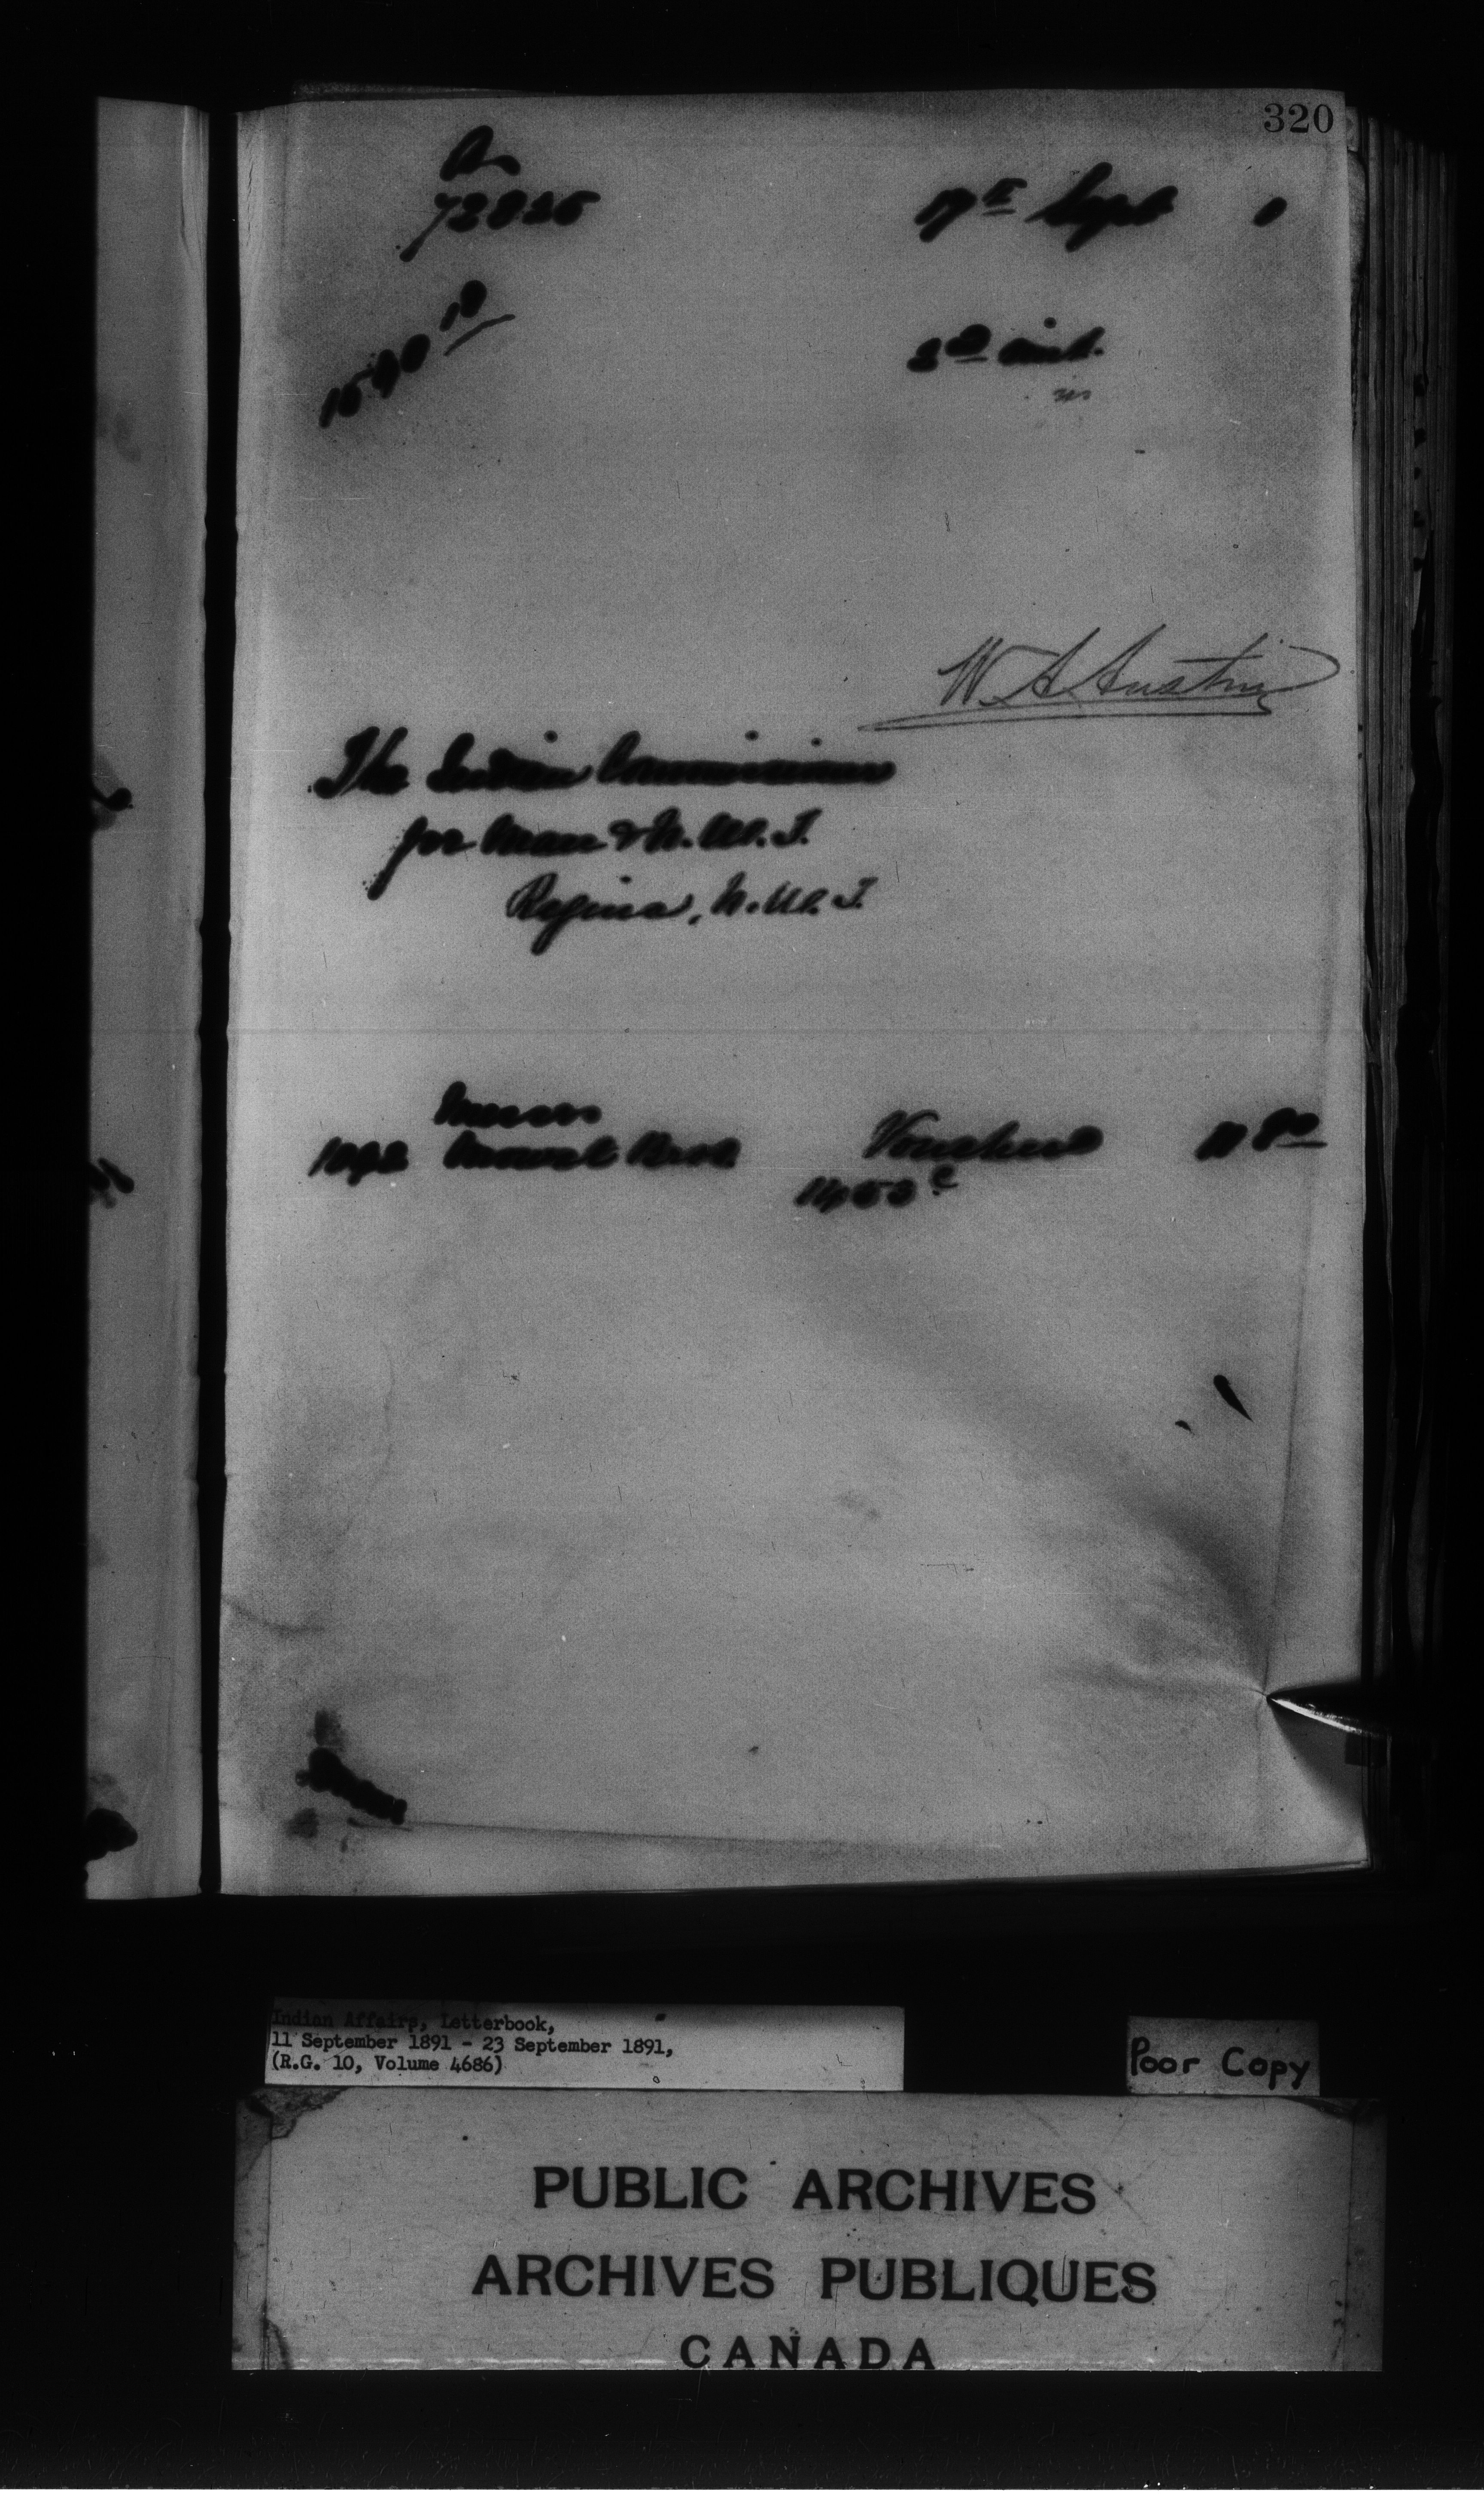 320
72826
17th Sept 1
1690 18
3rd inst.
W. A. Austin
The Indian Commissioner
for Man & N. W. T.
Regina, N. W. T.
Messrs
1092 Mowat Bros. Vouchers 11 80
1453 c
Indian Affairs, Letterbook,
11 September 1891 - 23 September 1891,
(R.G. 10, Volume 4686)
Poor Copy
PUBLIC ARCHIVES
ARCHIVES PUBLIQUES
CANADA